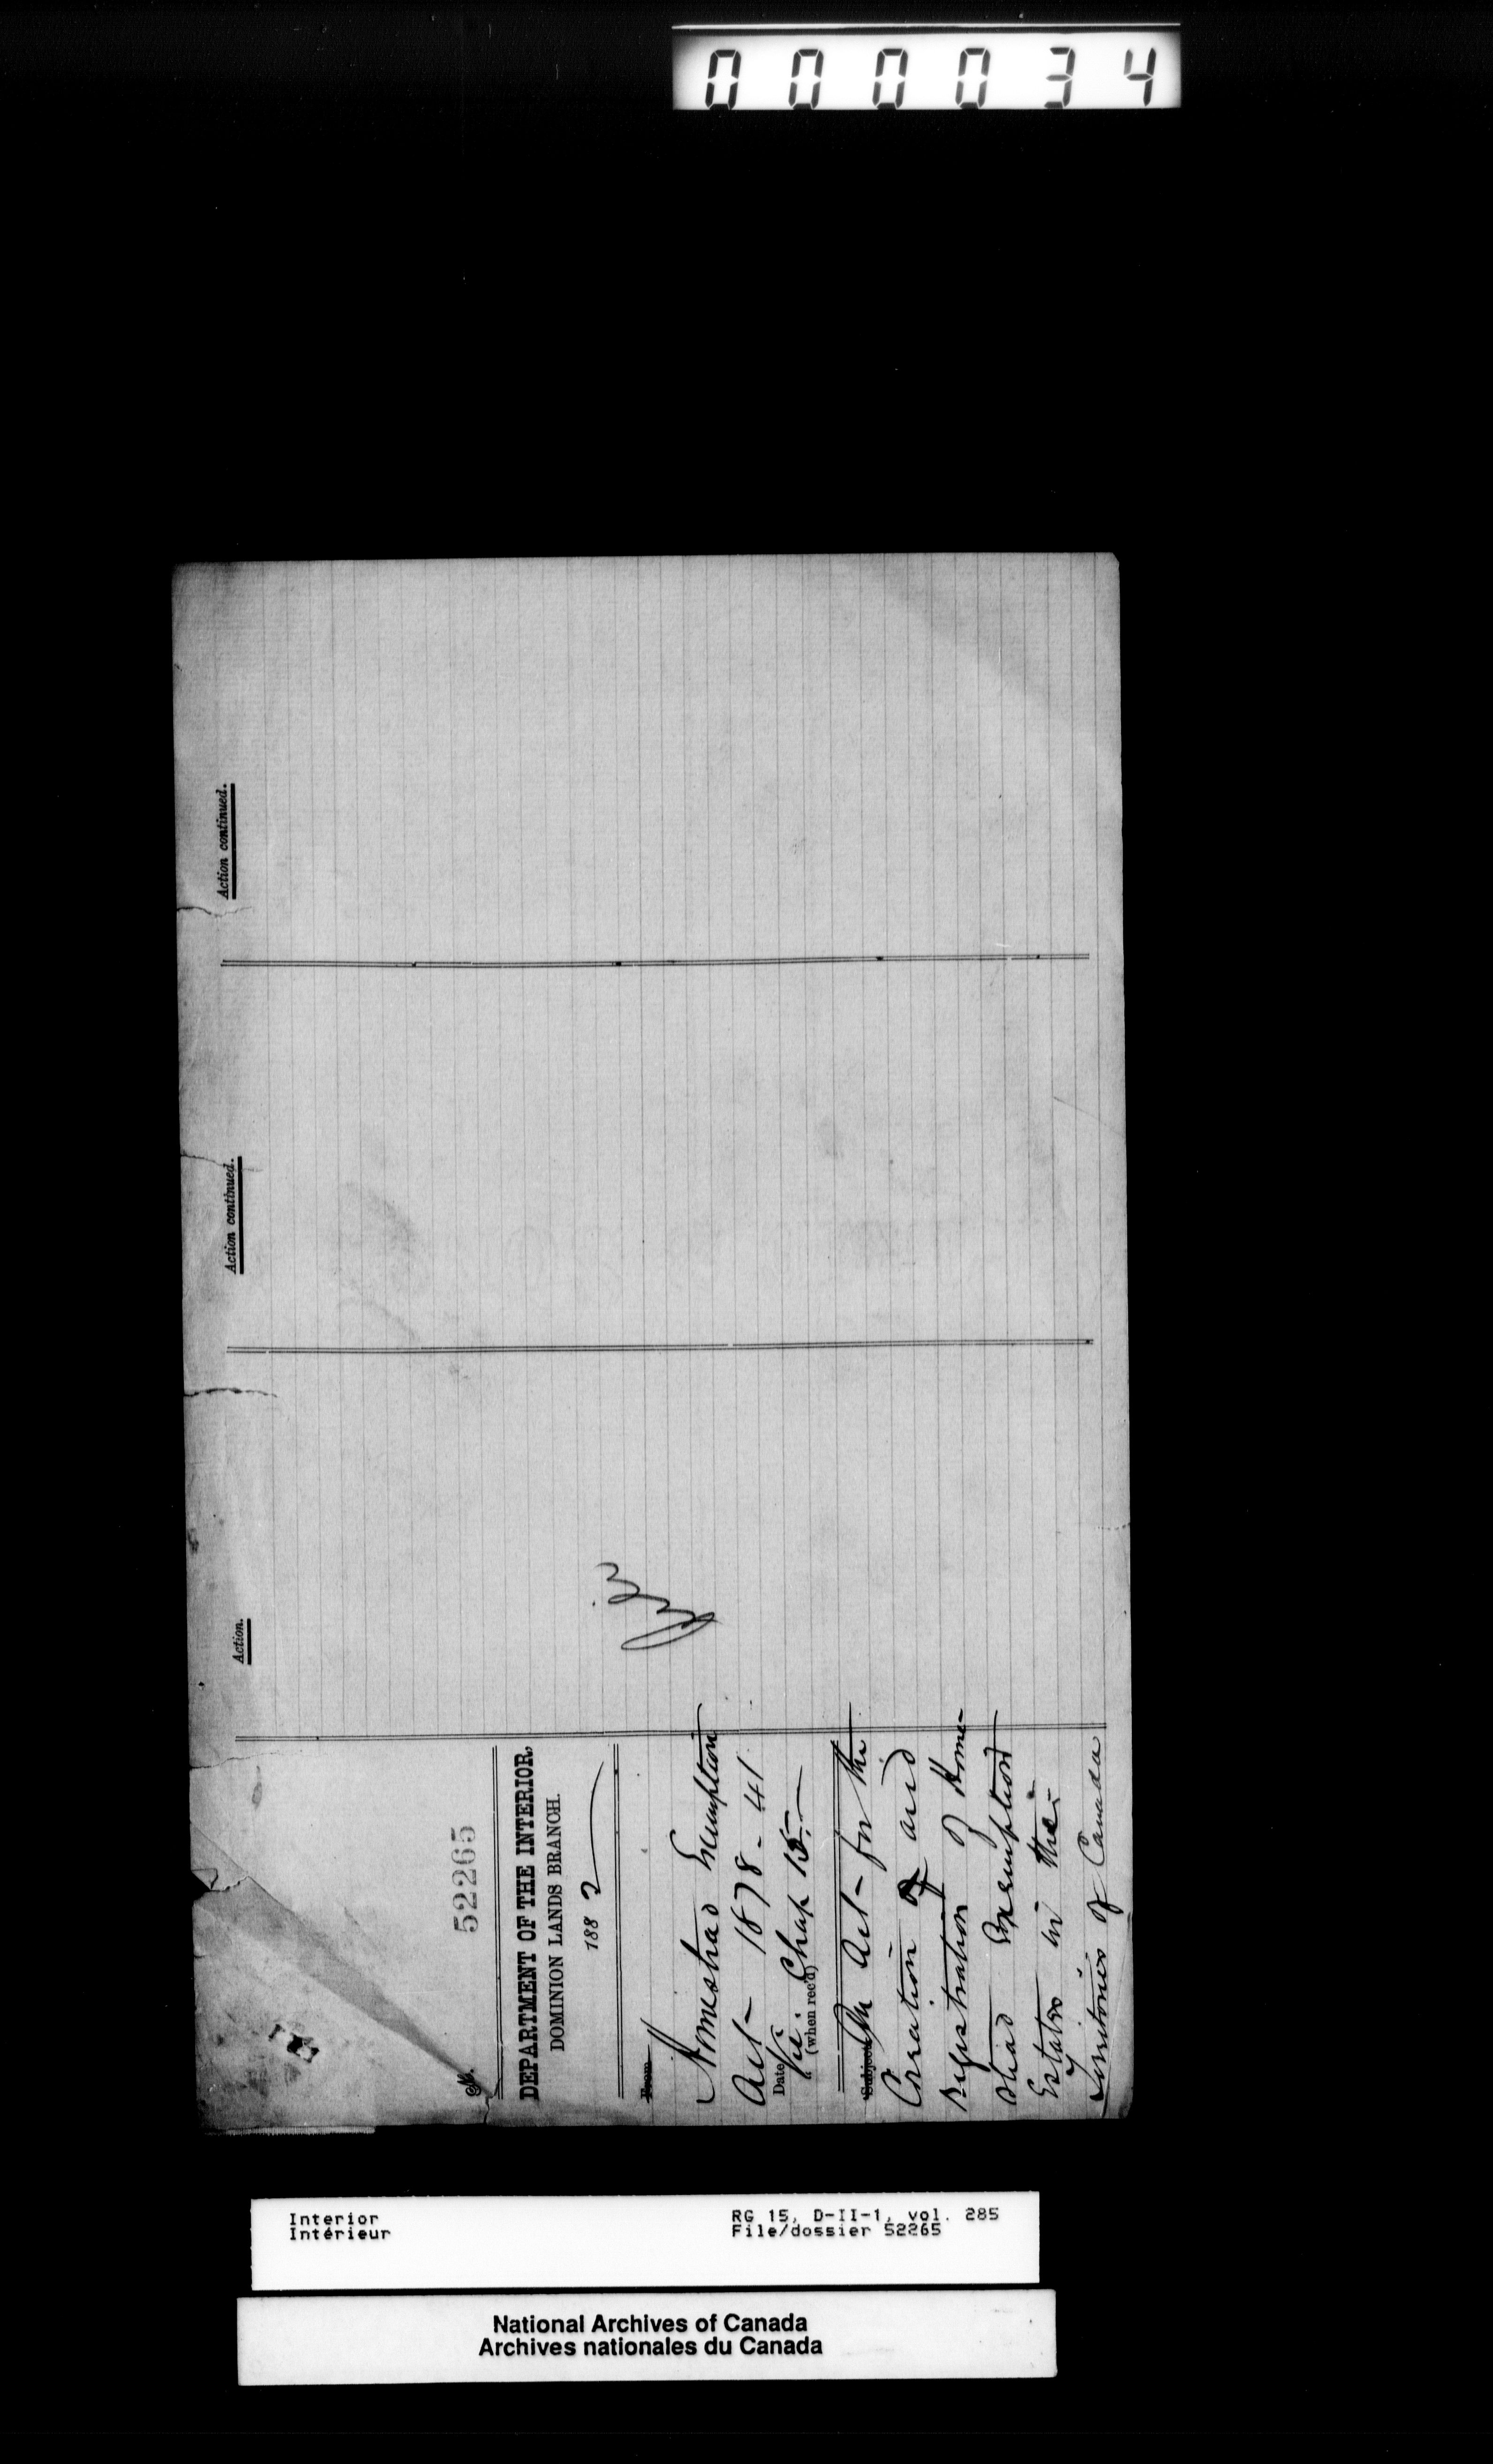 000034
No. 52265
DEPARTMENT OF THE INTERIOR,
DOMINION LANDS BRANCH.
1882
From
Homestead Exemption
Act - 1878 - 41
Date
Vic. Chap 15.
(when rec'd)
Subject
An Act - for the
Creation of and
registration of Home-
stead Exemption
Estates in the
Territories of Canada
Action.
Action continued.
Action continued.
Interior
Intérieur
RG 15, D-II-1, vol. 285
File/dossier 52265
National Archives of Canada
Archives nationales du Canada